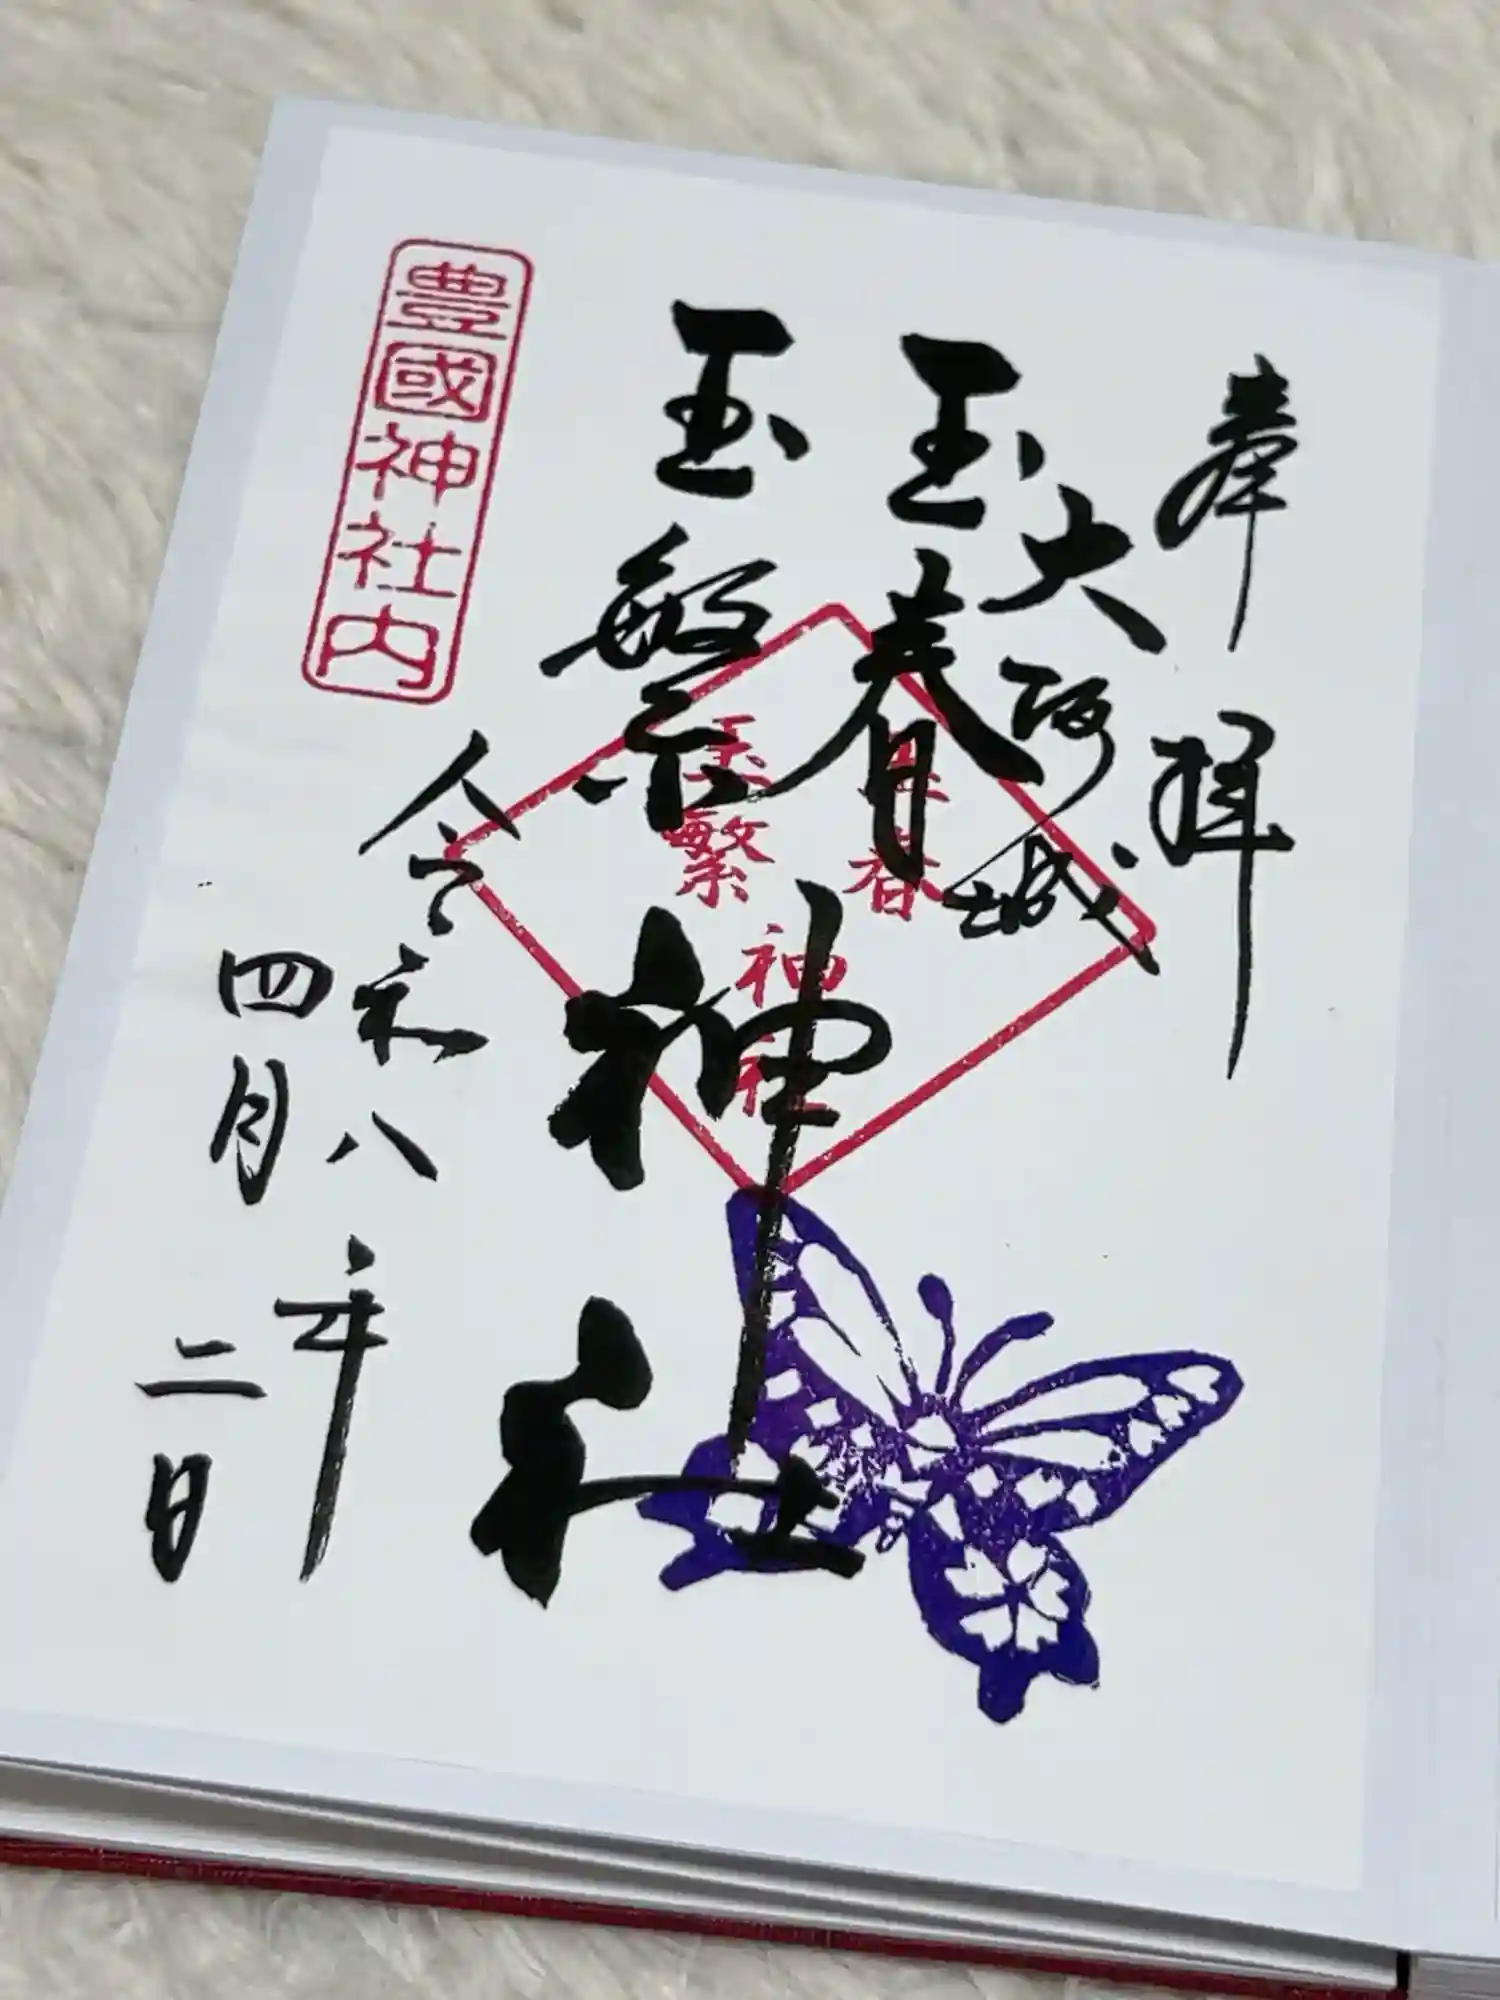 奉拝
大阪城
玉春
玉繁
神社
玉春
玉繁
神社
令和八年
四月二日
豊國神社内